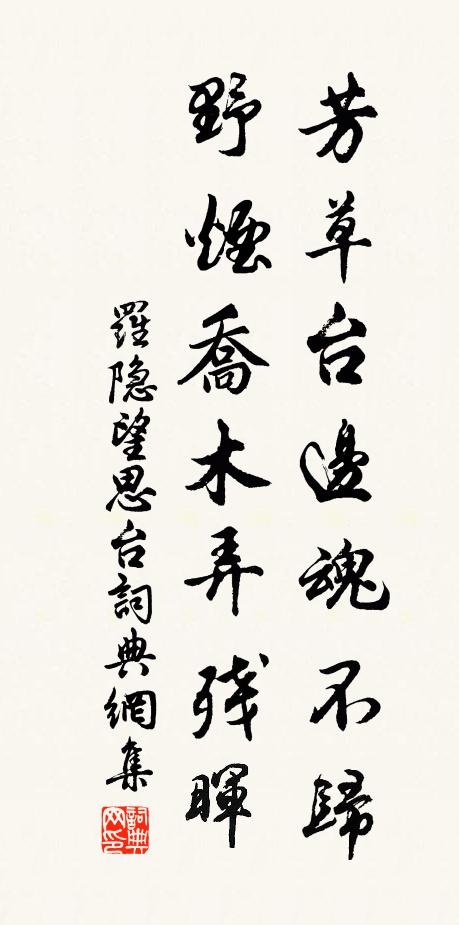 芳草台邊魂不歸
野煙喬木弄残暉
羅隐望思台詞典網集
詞典網印